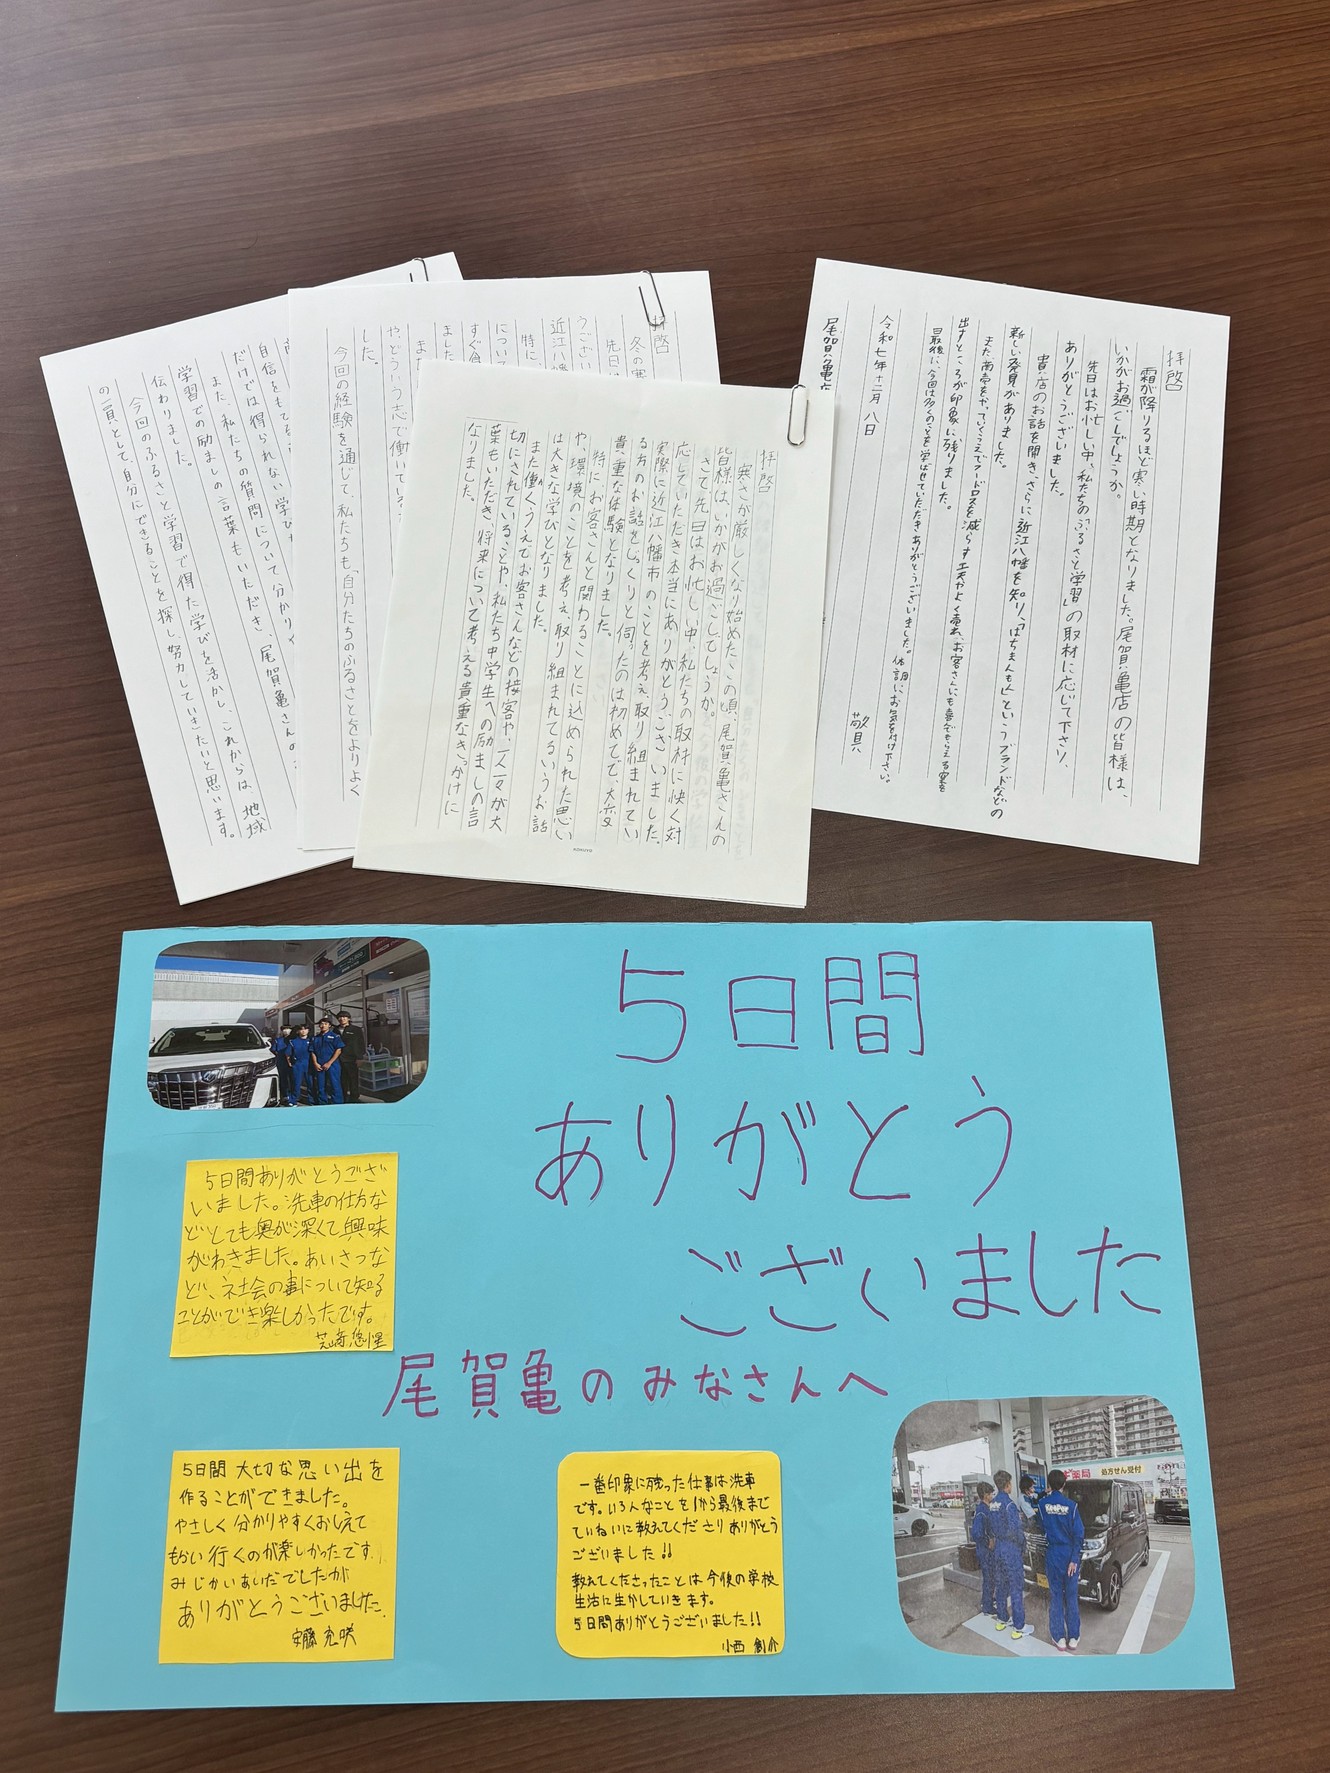 拝啓
霜が降りるほど寒い時期となりました。尾賀亀店の皆様は、
いかがお過ごしでしょうか。
先日はお忙しい中、私たちの「ふるさと学習」の取材に応じて下さり、
ありがとうございました。
貴店のお話を聞き、さらに近江八幡を知り、「はちまんもん」というブランドなどの
新しい発見がありました。
また、商売をやっていくうえでフードロスを減らす工夫がよく売れ、お客さんにも喜んでもらえる案を
出すところが印象に残りました。
最後に、今回は多くのことを学ばせていただきありがとうございました。体調にお気を付け下さい。
敬具
令和七年十二月八日
尾賀亀店
拝啓
寒さが厳しくなり始めたこの頃、尾賀亀さんの
皆様は、いかがお過ごしでしょうか。
さて先日はお忙しい中、私たちの取材に快く対
応していただき本当にありがとうございました。
実際に近江八幡市のことを考え、取り組まれてい
る方のお話をじっくりと伺ったのは初めてで、大変
貴重な体験となりました。
特にお客さんと関わることに込められた思い
や、環境のことを考え、取り組まれてるいうお話
は大きな学びとなりました。
また働くうえでお客さんなどの接客や、一人一人が大
切にされていることや、私たち中学生への励ましの言
葉もいただき、将来について考える貴重なきっかけに
なりました。
KOKUYO
拝啓
冬の寒
先日
うござい
近江八幡
特に
につい
すぐ
ました
また
やどういう志で働いてい
した。
今回の経験を通じて、私たちも「自分たちのふるさとをよりよく
自信をもてる
だけでは得られない学び
また、私たちの質問について分かりや
学習での励ましの言葉もいただき、尾賀亀さんの
伝わりました。
今回のふるさと学習で得た学びを活かし、これからは、地域
の一員として、自分にできることを探し、努力していきたいと思います。
5日間
ありがとう
ございました
尾賀亀のみなさんへ
5日間ありがとうござ
いました。洗車の仕方な
どとても奥が深くて興味
がわきました。あいさつな
ど、社会の事について知る
ことができ楽しかったです。
芝崎悠惺
5日間 大切な思い出を
作ることができました。
やさしく分かりやすくおしえて
もらい行くのが楽しかったです。
みじかいあいだでしたが
ありがとうございました。
安藤 充咲
一番印象に残った仕事は洗車
です。いろんなことを1から最後まで
ていねいに教えてくださりありがとう
ございました!!
教えてくださったことは今後の学校
生活に生かしていきます。
5日間ありがとうございました!!
小西 創介
薬局
処方せん受付